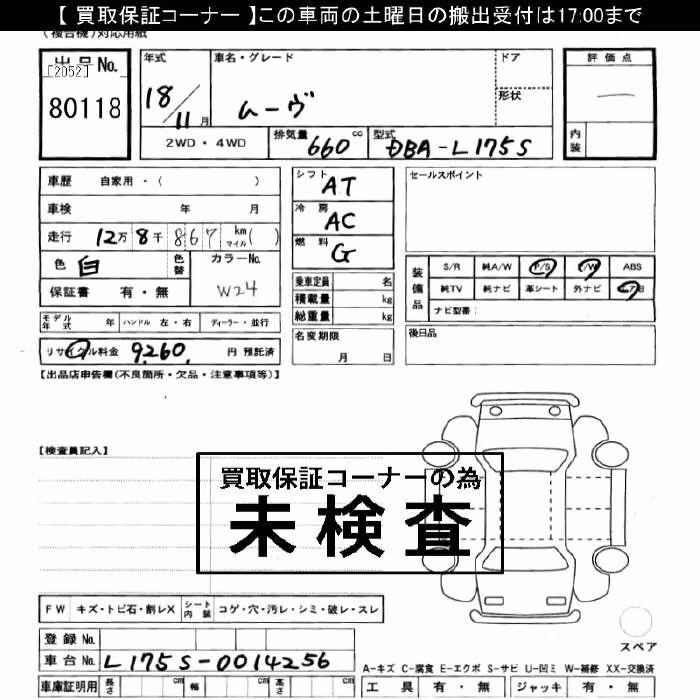 【 買取保証コーナー 】この車両の土曜日の搬出受付は17:00まで
(複合機)対応用紙
出品No.
[2052]
80118
年式
18/11月
車名・グレード
ムーヴ
ドア
形状
評価点
内装
2WD・4WD
排気量 660 cc
型式 DBA-L175S
車歴 自家用・( )
車検 年 月
走行 12万8千867 km マイル ( )
色 白
色替
カラーNo.
W24
保証書 有・無
シフト AT
冷房 AC
燃料 G
乗車定員 名
積載量 kg
総重量 kg
名変期限
月 日
セールスポイント
装備品
S/R 純A/W P/S P/W ABS
純TV 純ナビ 革シート 外ナビ
ナビ型番:
後日品
モデル年式 年 ハンドル 左・右 ディーラー・並行
リサイクル料金 9,260 円 預託済
【出品店申告欄(不良箇所・欠品・注意事項等)】
【検査員記入】
買取保証コーナーの為
未検査
FW キズ・トビ石・割レX シート内装 コゲ・穴・汚レ・シミ・破レ・スレ
スペア
登録No.
車台No. L175S-0014256
A-キズ C-腐食 E-エクボ S-サビ U-凹ミ W-補修 XX-交換済
車庫証明用 長さ cm 幅 cm 高さ cm
工具 有・無 ジャッキ 有・無